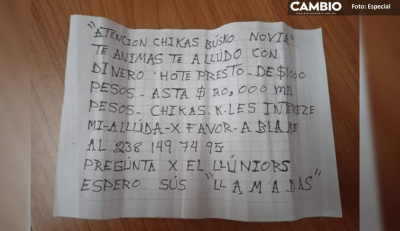 CAMBIO
Foto: Especial
"ATENCION CHIKAS BÚSKO NOVIA"
TE ANIMAS TE ALLÚDO CON
DINERO HOTE PRESTO - DE $1000
PESOS - ASTA $ 20,000 MIL
PESOS - CHIKAS. K. LES INTEREZE
MI - ALLÚDA - X FAVOR - ABLAME
AL 238 149 74 95
PREGÚNTA X EL LLÚNIORS
ESPERO SÚS "LLAMADAS"